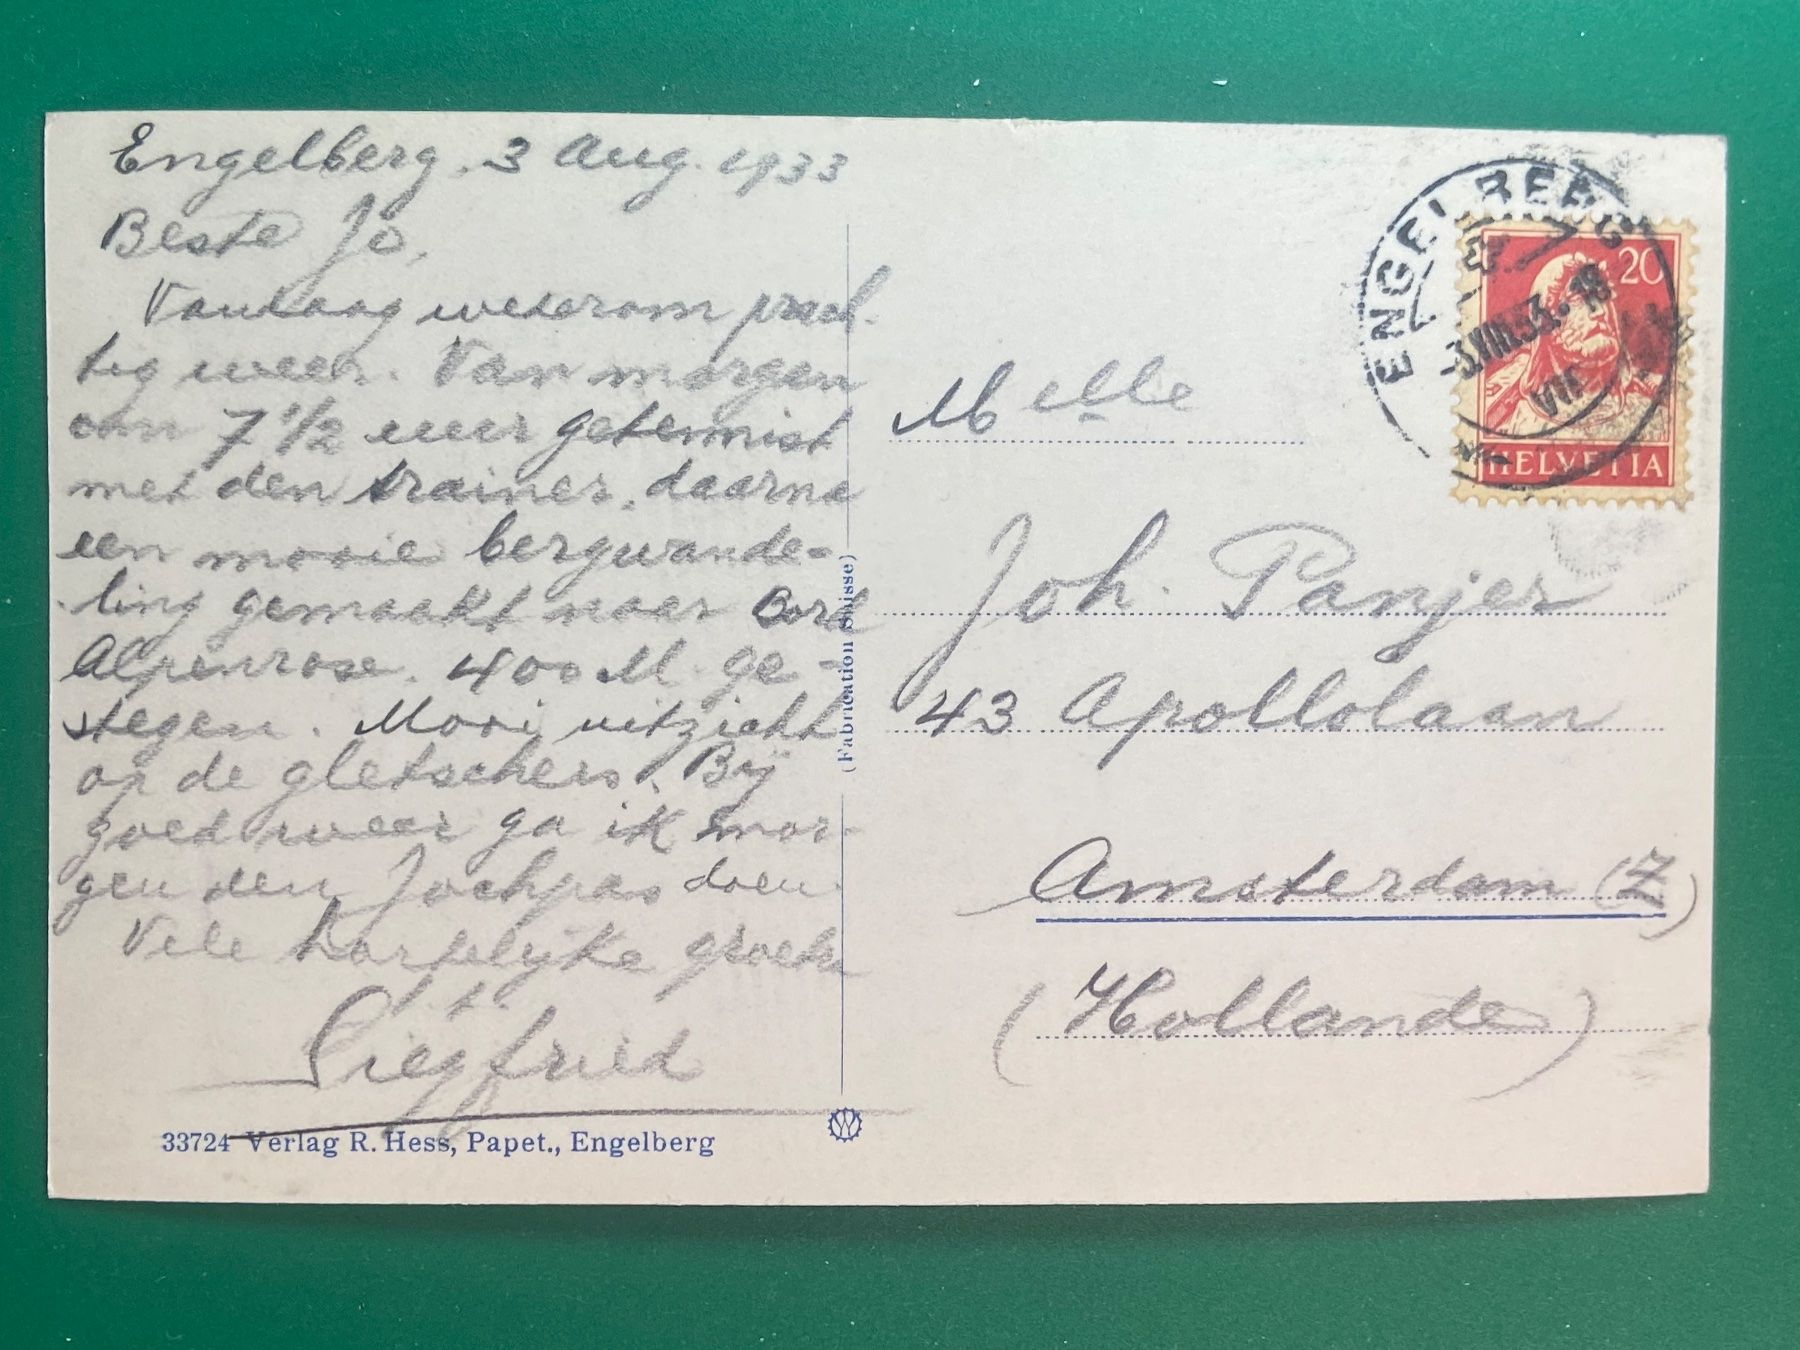 Engelberg. 3 Aug. 1933
Beste Jo,
Vandaag wederom prach-
tig weer. Van morgen
om 7 1/2 uur getennist
met den trainer, daarna
een mooie bergwande-
ling gemaakt naar Bord
Alpenrose. 400 M. ge-
stegen. Mooi uitzicht
op de gletschers. Bij
goed weer ga ik mor-
gen den Jochpas doen.
Vele hartelijke groeten
Siegfried
33724 Verlag R. Hess, Papet., Engelberg
(Fabrication Suisse)
ENGELBERG
-3.VIII.33.-18
VIIc
20
HELVETIA
Melle
Joh. Panjer
43 Apollolaan
Amsterdam (Z)
(Hollande)